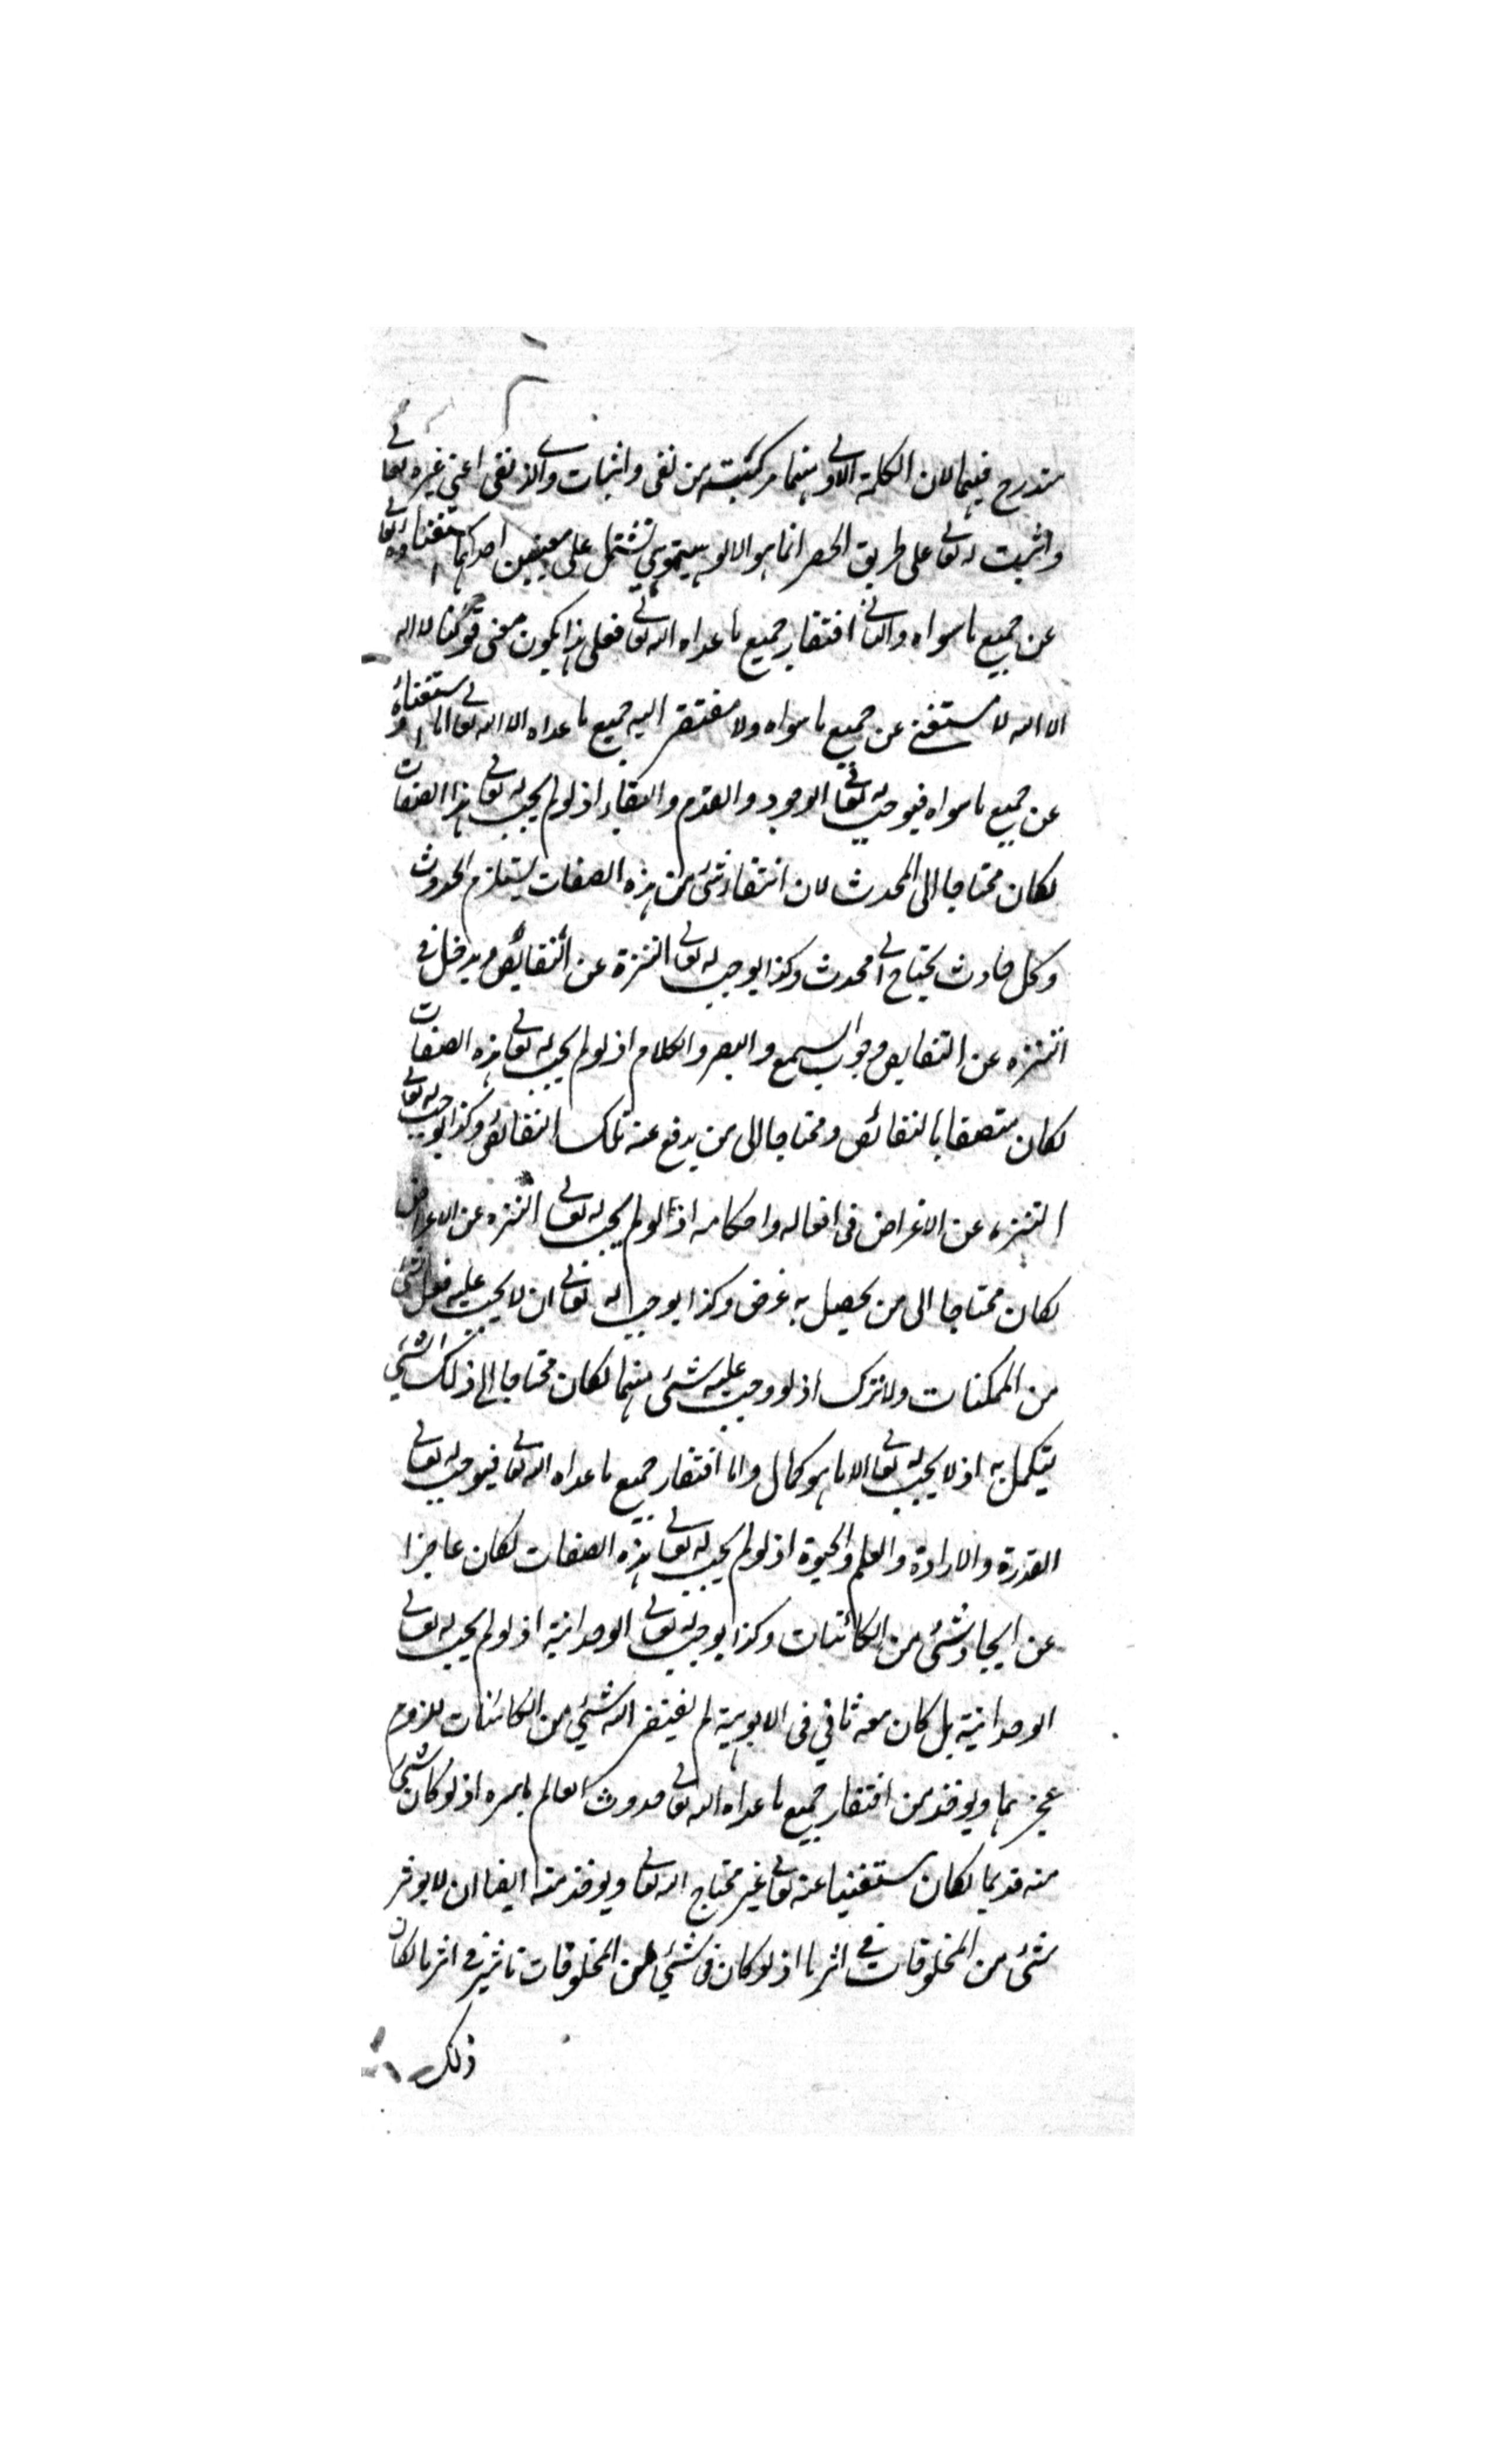 مندرج فيهما لان الكلمة الاولى منهما مركبة من نفى واثبات والذى نفى اعنى غيره تعالى
واثبت له تعالى على طريق الحصر انما هو الالوهية وهى تشتمل على معنيين احدهما استغناؤه تعالى
عن جميع ما سواه والثانى افتقار جميع ما عداه اليه تعالى فعلى هذا يكون معنى قولنا لا اله
الا الله لا مستغنى عن جميع ما سواه ولا مفتقر اليه جميع ما عداه الا الله تعالى اما استغناؤه
عن جميع ما سواه فيوجب له تعالى الوجود والقدم والبقاء اذ لو لم يجب له تعالى هذا الصفات
لكان محتاجا الى المحدث لان انتفاء شئ من هذه الصفات يستلزم الحدوث
وكل حادث يحتاج الى محدث وكذا يوجب له تعالى التنزه عن النقايص ويدخل فى
التنزه عن النقايص وجوب السمع والبصر والكلام اذ لو لم يجب له تعالى هذه الصفات
لكان متصفا بالنقائص ومحتاجا الى من يدفع عنه تلك النقائص وكذا يوجب له تعالى
التنزه عن الاغراض فى افعاله واحكامه اذ لو لم يجب له تعالى التنزه عن الاغراض
لكان محتاجا الى من يحصل به غرضه وكذا يوجب له تعالى ان لا يجب عليه فعل شئ
من الممكنات ولا تركه اذ لو وجب عليه شئ منهما لكان محتاجا الى ذلك الشئ
يتكمل به اذ لا يجب له تعالى الا ما هو كمال واما افتقار جميع ما عداه اليه تعالى فيوجب له تعالى
القدرة والارادة والعلم والحيوة اذ لو لم يجب له تعالى هذه الصفات لكان عاجزا
عن ايجاد شئ من الكائنات وكذا يوجب له تعالى الوحدانية اذ لو لم يجب له تعالى
الوحدانية بل كان معه ثانى فى الالوهية لم يفتقر اليه شئ من الكائنات للزوم
عجزهما ويؤخذ من افتقار جميع ما عداه اليه تعالى حدوث العالم باسره اذ لو كان شئ
منه قديما لكان مستغنيا عنه تعالى غير محتاج اليه تعالى ويؤخذ منه ايضا ان لا يؤثر
شئ من المخلوقات فى اثر ما اذ لو كان فى شئ من المخلوقات تاثير فى اثر ما لكان
ذلك